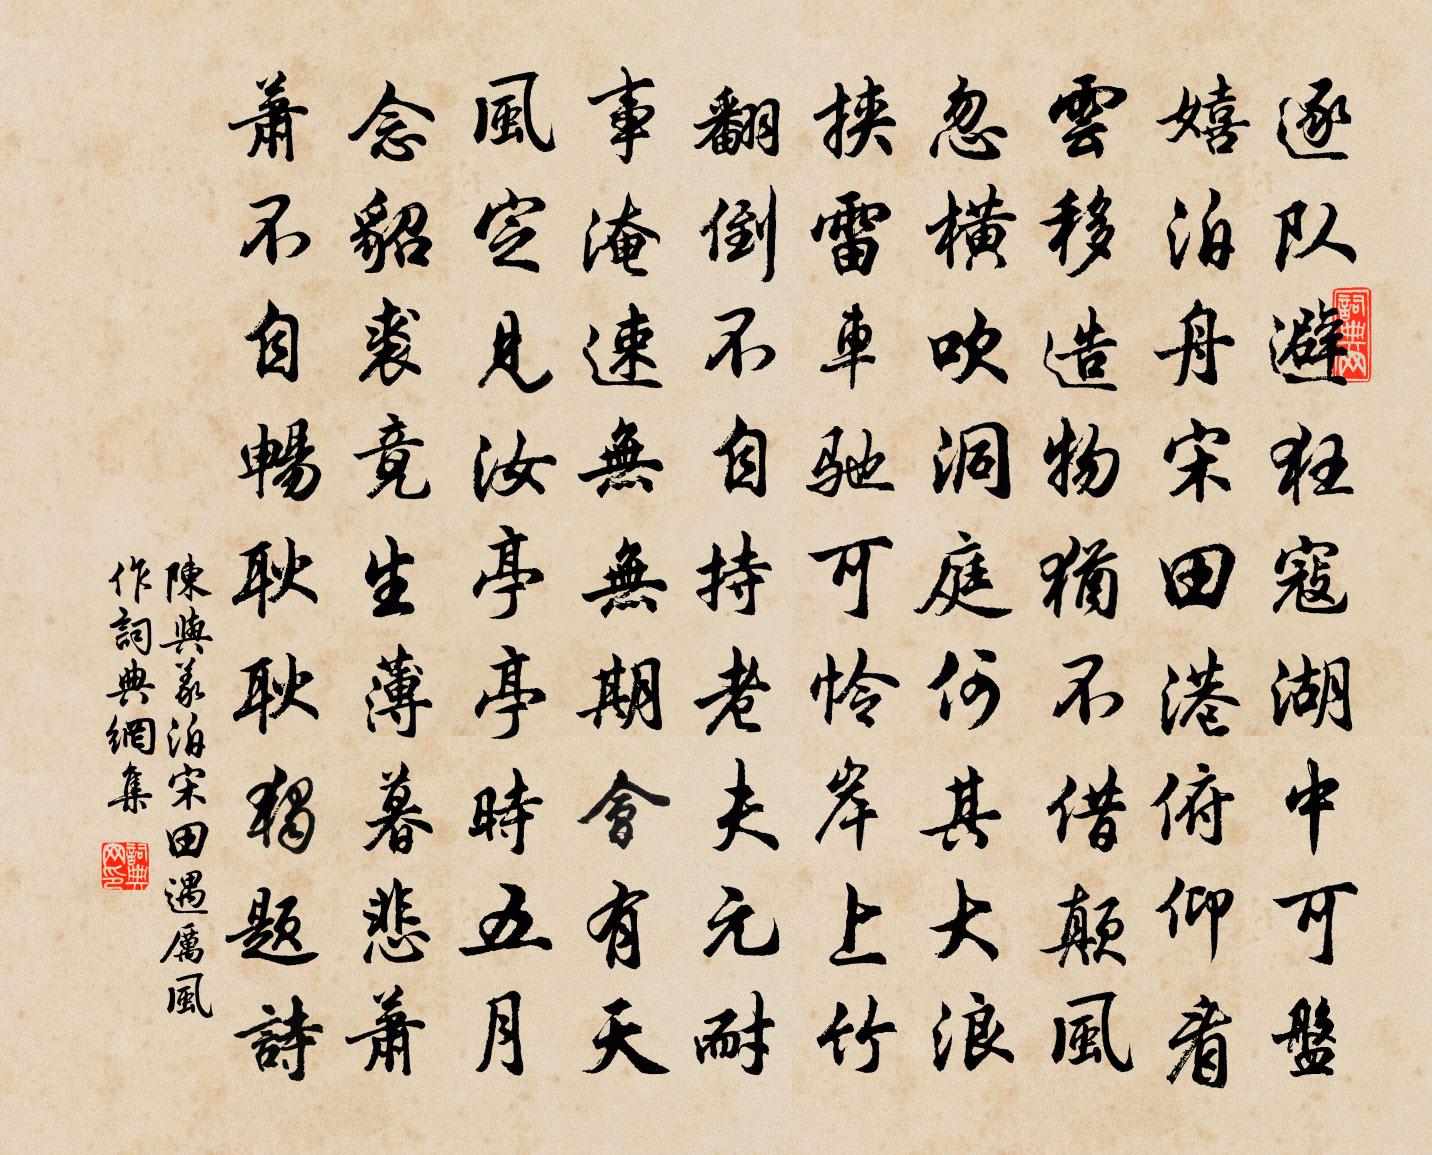 逐队避狂寇湖中可盤
嬉泊舟宋田港俯仰看
雲移造物猶不借顛風
忽橫吹洞庭何其大浪
挾雷車馳可怜岸上竹
翻倒不自持老夫元耐
事淹速無無期會有天
風定見汝亭亭時五月
念貂裘竟生薄暮悲蕭
蕭不自暢耿耿獨題詩
陳與義泊宋田遇厲風
作詞典網集
詞典网
詞典网印